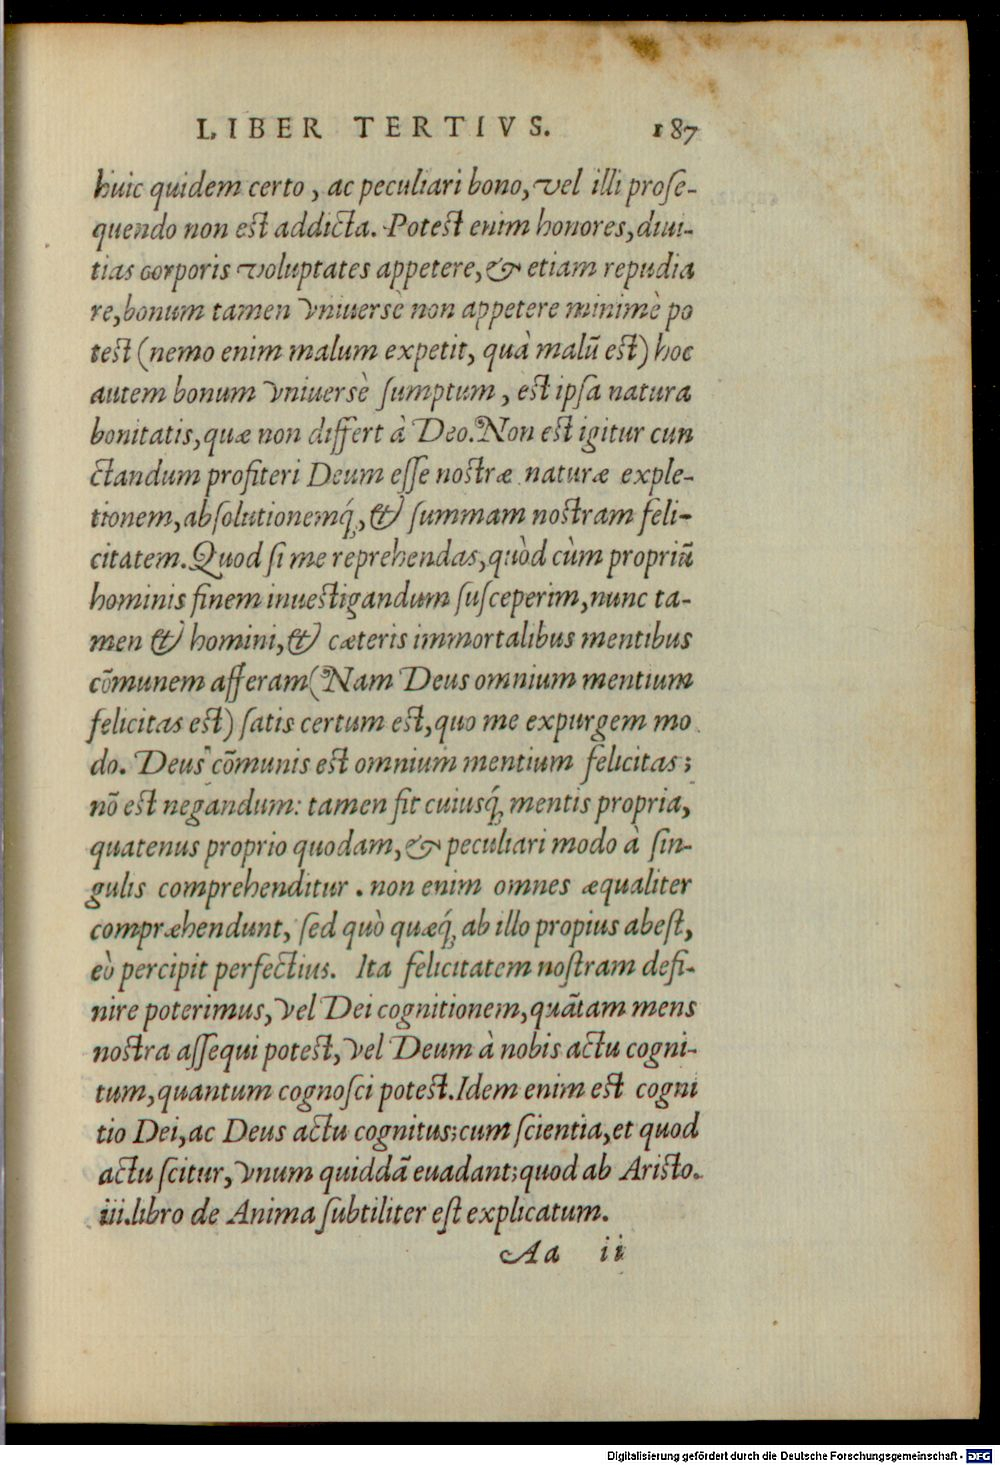 LIBER TERTIVS. 187
huic quidem certo, ac peculiari bono, vel illi prose-
quendo non est addicta. Potest enim honores, diui-
tias corporis voluptates appetere, & etiam repudia
re, bonum tamen vniuersè non appetere minimè po
test (nemo enim malum expetit, quà malũ est) hoc
autem bonum vniuersè sumptum, est ipsa natura
bonitatis, quæ non differt à Deo. Non est igitur cun
ctandum profiteri Deum esse nostræ naturæ exple-
tionem, absolutionemq́;, & summam nostram feli-
citatem. Quod si me reprehendas, quòd cùm propriũ
hominis finem inuestigandum susceperim, nunc ta-
men & homini, & cæteris immortalibus mentibus
cõmunem afferam (Nam Deus omnium mentium
felicitas est) satis certum est, quo me expurgem mo
do. Deus cõmunis est omnium mentium felicitas;
nõ est negandum: tamen fit cuiusq́; mentis propria,
quatenus proprio quodam, & peculiari modo à sin-
gulis comprehenditur. non enim omnes æqualiter
compræhendunt, sed quò quæq́; ab illo propius abest,
eò percipit perfectius. Ita felicitatem nostram defi-
nire poterimus, vel Dei cognitionem, quãtam mens
nostra assequi potest, vel Deum à nobis actu cogni-
tum, quantum cognosci potest. Idem enim est cogni
tio Dei, ac Deus actu cognitus; cum scientia, et quod
actu scitur, vnum quiddã euadant; quod ab Aristo.
iii. libro de Anima subtiliter est explicatum.
Aa ii
Digitalisierung gefördert durch die Deutsche Forschungsgemeinschaft - DFG